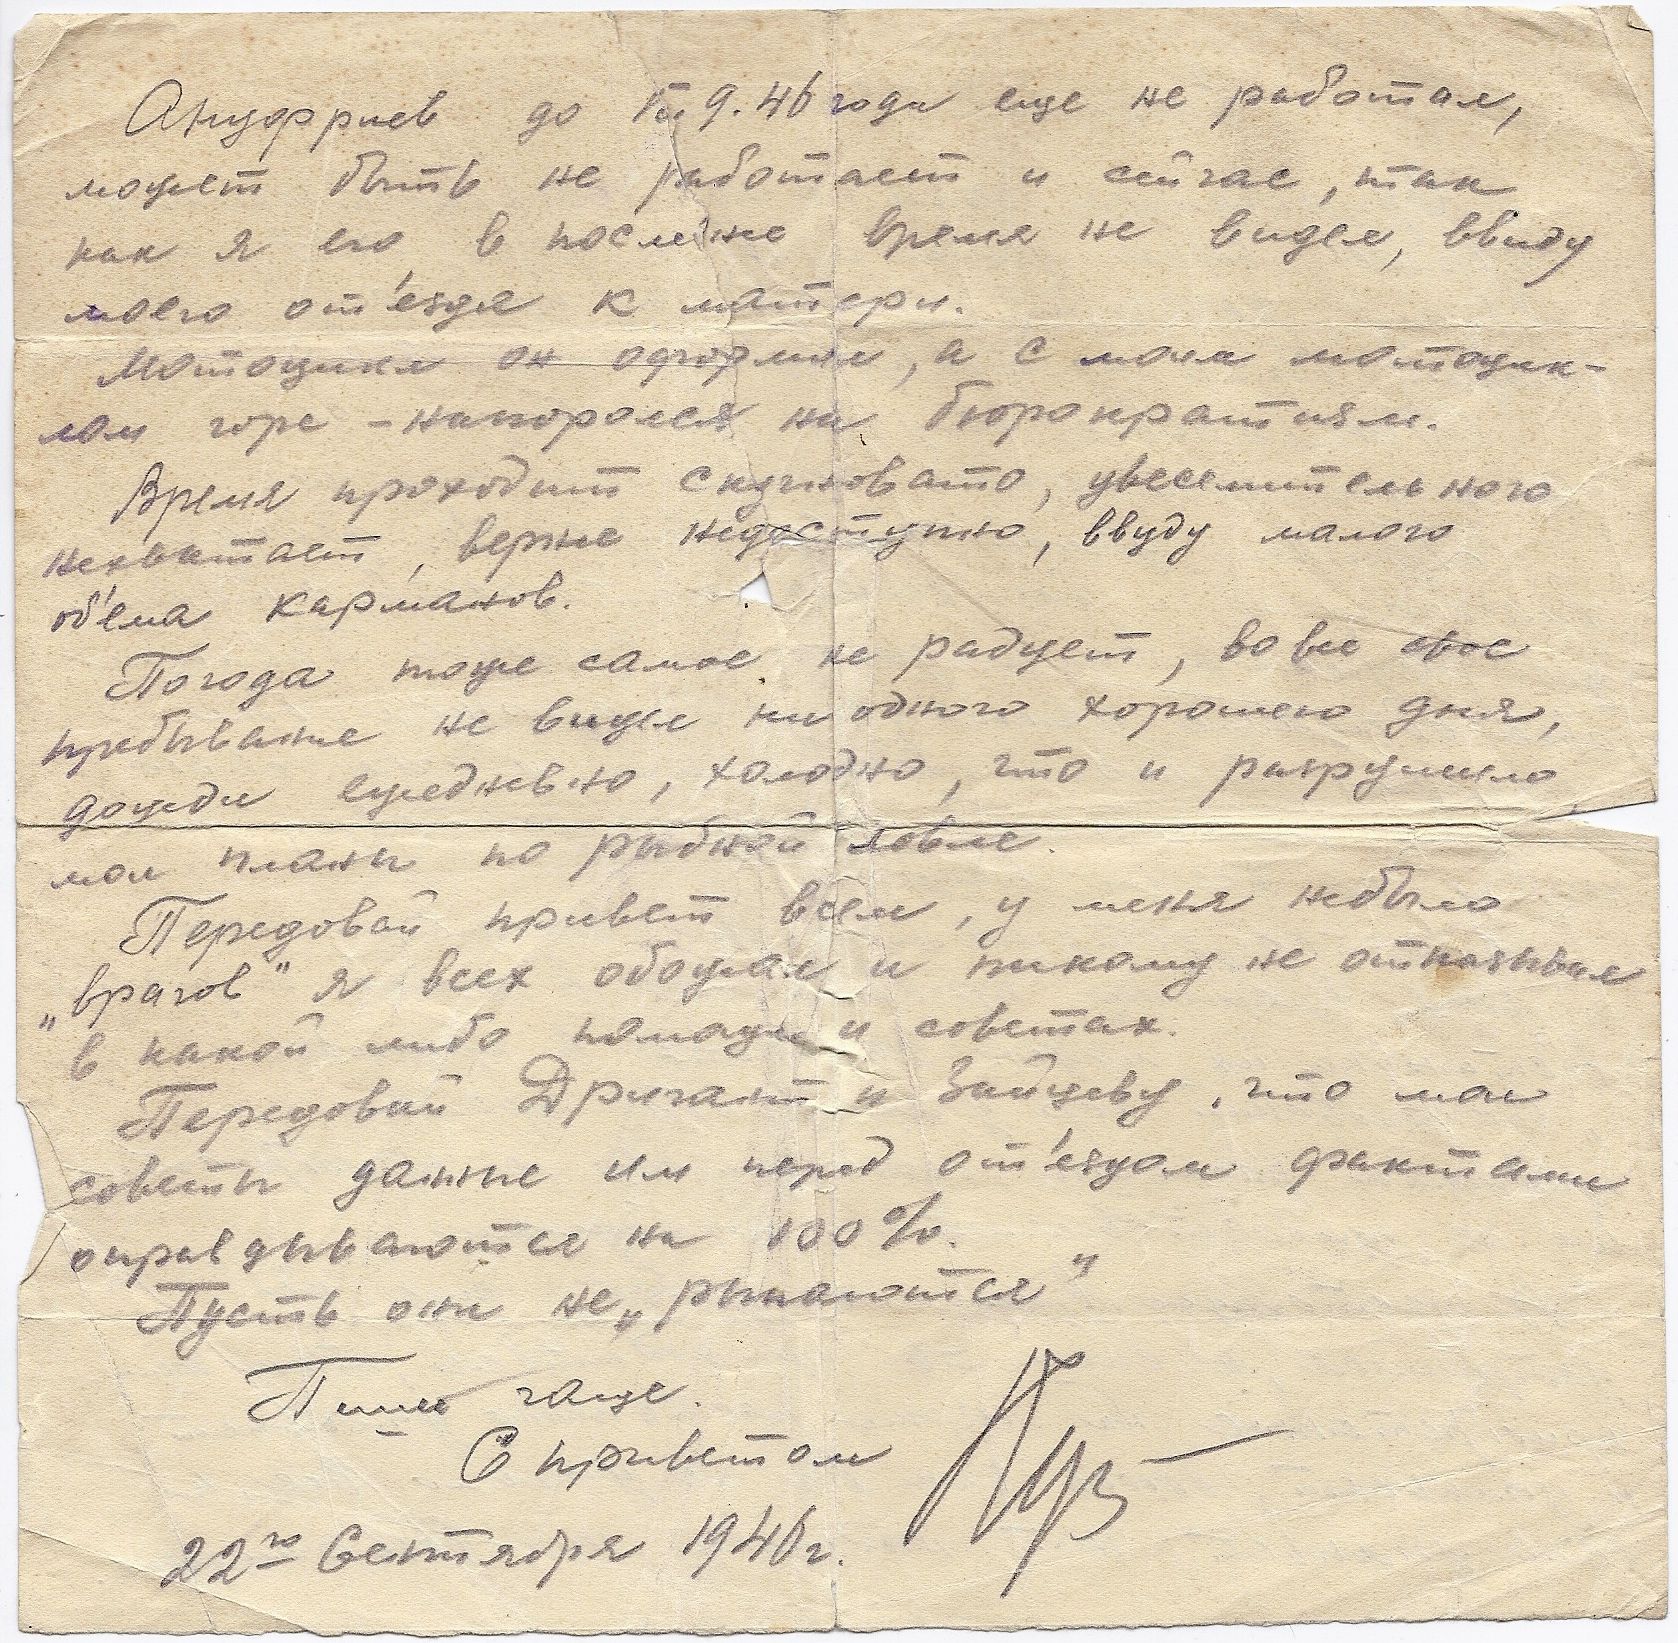 Ануфриев до 9.46 года еще не работал,
может быть не работает и сейчас, так
как я его в последнее время не видел, ввиду
моего от'езда к матери.
Мотоцикл он оформил, а с моим мотоцик-
лом горе - напоролся на бюрократизм.
Время проходит скучновато, увеселительного
нехватает, верне недоступно, ввуду малого
об'ема карманов.
Погода тоже самое не радует, во все свое
пребывание не видел ни одного хорошего дня,
дожди ежедневно, холодно, что и разрушило
мои планы по рыбной ловле.
Передовай привет всем, у меня небыло
„врагов" я всех обожал и никому не отказывал
в какой либо помощи и советах.
Передовай и Зайцеву, что мои
советы данные им перед от'ездом фактами
оправдываются на 100%.
Пусть они не „рыпаются"
Пиши чаще.
С приветом
22го Сентября 1946г.